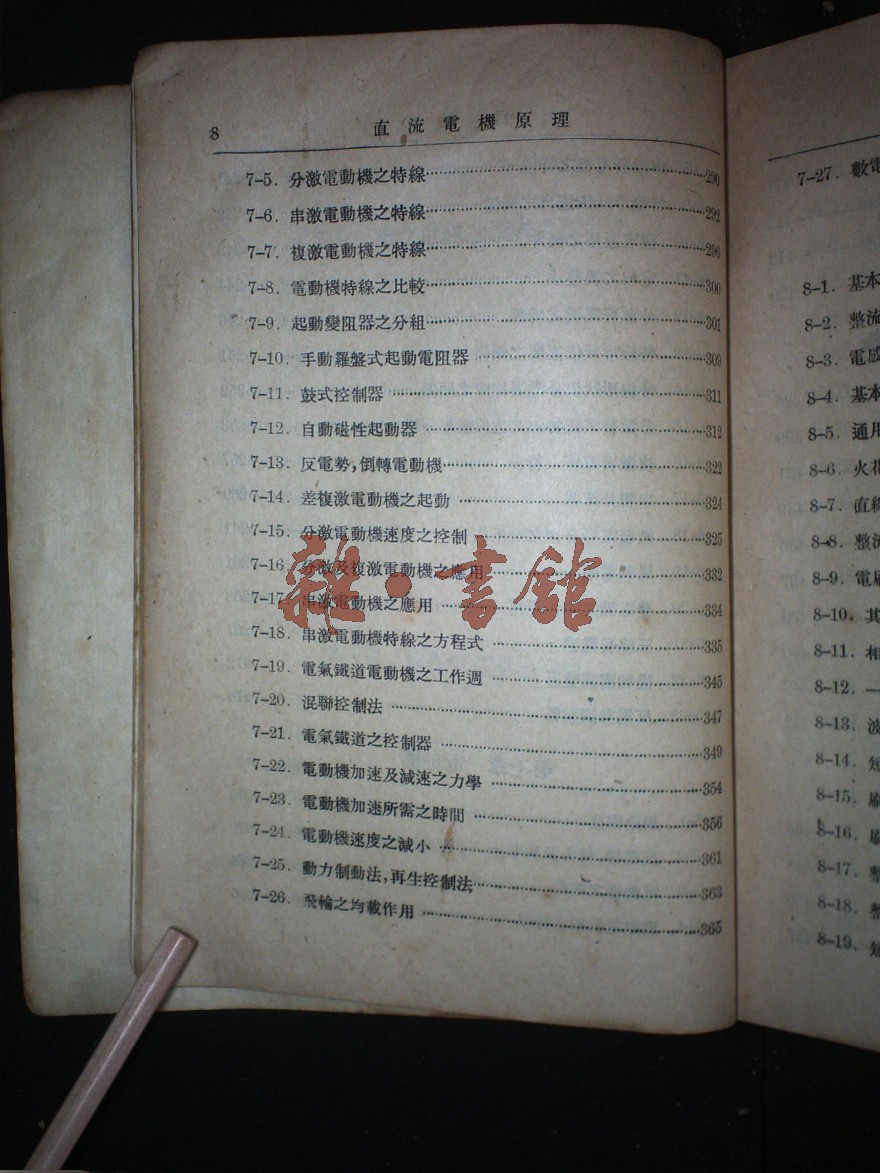 8 直流電機原理
7-5. 分激電動機之特線 290
7-6. 串激電動機之特線 292
7-7. 複激電動機之特線 296
7-8. 電動機特線之比較 300
7-9. 起動變阻器之分組 301
7-10. 手動羅盤式起動電阻器 309
7-11. 鼓式控制器 311
7-12. 自動磁性起動器 312
7-13. 反電勢,倒轉電動機 322
7-14. 差複激電動機之起動 324
7-15. 分激電動機速度之控制 325
7-16. 分激及複激電動機之應用 332
7-17. 串激電動機之應用 334
7-18. 串激電動機特線之方程式 335
7-19. 電氣鐵道電動機之工作週 345
7-20. 混聯控制法 347
7-21. 電氣鐵道之控制器 349
7-22. 電動機加速及減速之力學 354
7-23. 電動機加速所需之時間 356
7-24. 電動機速度之減小 361
7-25. 動力制動法,再生控制法 363
7-26. 飛輪之均載作用 365
雜·書館
7-27. 數電
8-1. 基本
8-2. 整流
8-3. 電感
8-4. 基本
8-5. 通用
8-6. 火花
8-7. 直線
8-8. 整流
8-9. 電刷
8-10. 其
8-11. 相
8-12. 一
8-13. 波
8-14. 短
8-15. 刷
8-16. 刷
8-17. 整
8-18. 整
8-19. 短